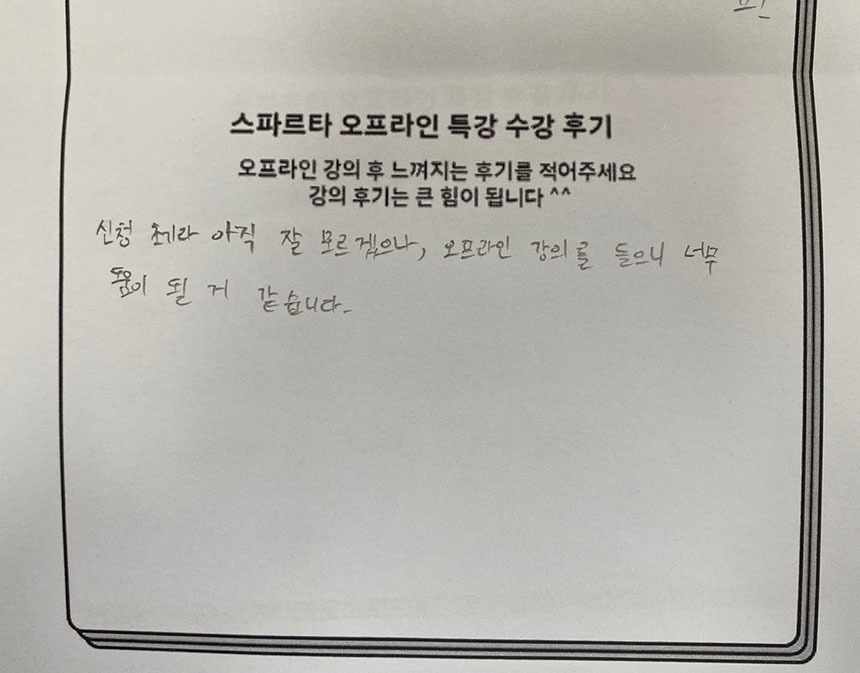 스파르타 오프라인 특강 수강 후기
오프라인 강의 후 느껴지는 후기를 적어주세요
강의 후기는 큰 힘이 됩니다 ^^
신청 초기라 아직 잘 모르겠으나, 오프라인 강의를 들으니 너무
도움이 될 거 같습니다.